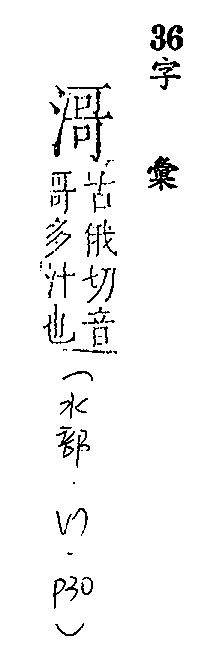 36字彙
滒
苦俄切音
哥多汁也
(水部. . P30)